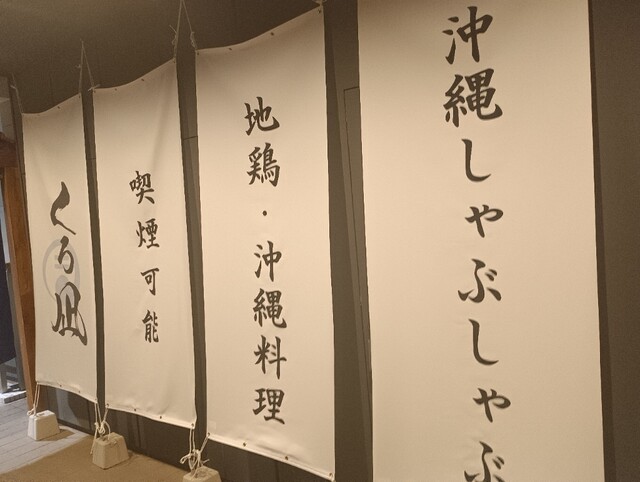 沖縄しゃぶしゃぶ
地鶏・沖縄料理
喫煙可能
くろ凪